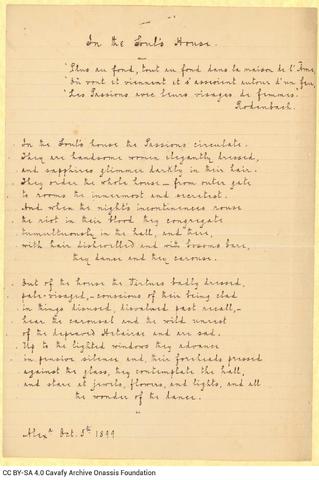 In the Soul's House.
"Plus au fond, tout au fond dans la maison de l'Âme,
"Où vont et viennent et s'asseoient autour d'un feu,
"Les Passions avec leurs visages de femmes"
Rodenbach.
In the Soul's house the Passions circulate.
They are handsome women elegantly dressed,
and sapphires glimmer darkly in their hair.
They order the whole house — from outer gate
to rooms the innermost and secretest.
And when the night's incontinences rouse
the riot in their blood they congregate
tumultuously in the hall, and there,
with hair dishevelled and with bosoms bare,
they dance and they carouse.
Out of the house the Virtues badly dressed,
pale-visaged, — conscious of their being clad
in things disused, disvalued past recall, —
hear the carousal and the wild unrest
of the depraved Hetairae and are sad.
Up to the lighted windows they advance
in pensive silence and, their foreheads pressed
against the glass, they contemplate the hall,
and stare at jewels, flowers, and lights, and all
the wonder of the dance.
Alex.a Oct. 5th 1899
CC BY-SA 4.0 Cavafy Archive Onassis Foundation